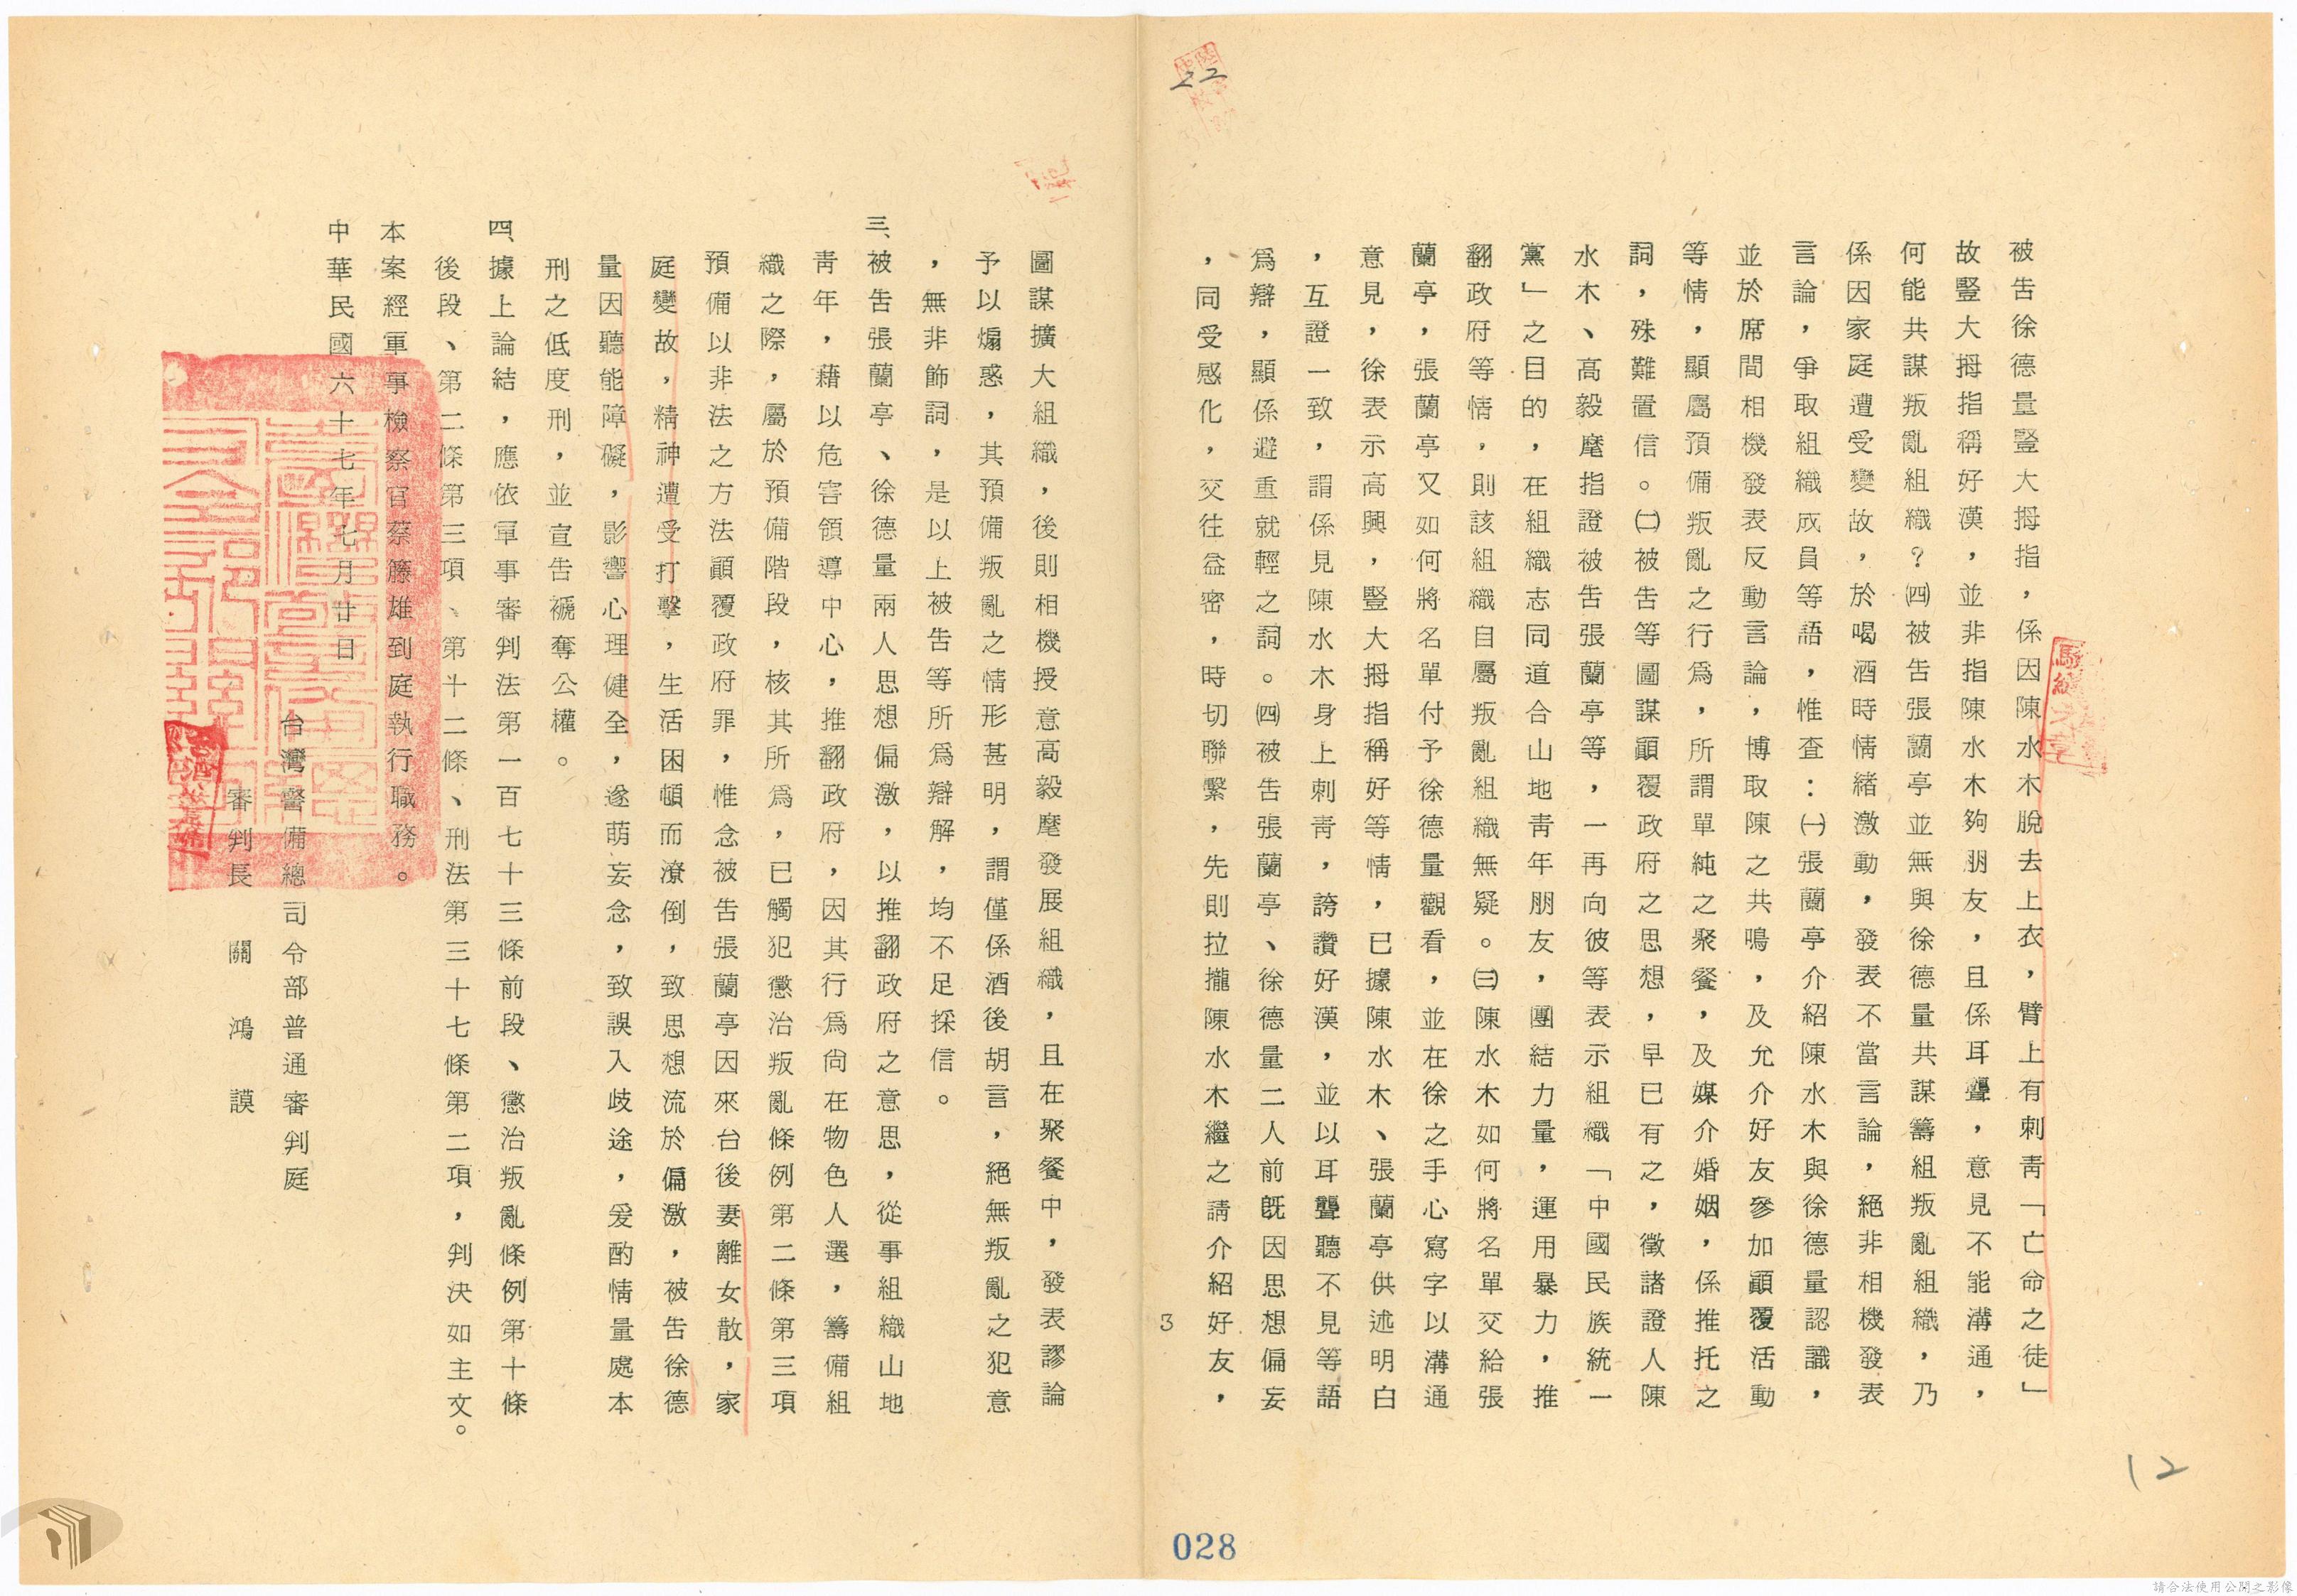 被告徐德量豎大拇指，係因陳水木脫去上衣，臂上有刺青「亡命之徒」
故豎大拇指稱好漢，並非指陳水木夠朋友，且係耳聾，意見不能溝通，
何能共謀叛亂組織？㈣被告張蘭亭並無與徐德量共謀籌組叛亂組織，乃
係因家庭遭受變故，於喝酒時情緒激動，發表不當言論，絕非相機發表
言論，爭取組織成員等語，惟查：㈠張蘭亭介紹陳水木與徐德量認識，
並於席間相機發表反動言論，博取陳之共鳴，及允介好友參加顚覆活動
等情，顯屬預備叛亂之行爲，所謂單純之聚餐，及媒介婚姻，係推托之
詞，殊難置信。㈡被告等圖謀顚覆政府之思想，早已有之，徵諸證人陳
水木、高毅麾指證被告張蘭亭等，一再向彼等表示組織「中國民族統一
黨」之目的，在組織志同道合山地青年朋友，團結力量，運用暴力，推
翻政府等情，則該組織自屬叛亂組織無疑。㈢陳水木如何將名單交給張
蘭亭，張蘭亭又如何將名單付予徐德量觀看，並在徐之手心寫字以溝通
意見，徐表示高興，豎大拇指稱好等情，已據陳水木、張蘭亭供述明白
，互證一致，謂係見陳水木身上刺青，誇讚好漢，並以耳聾聽不見等語
爲辯，顯係避重就輕之詞。㈣被告張蘭亭、徐德量二人前既因思想偏妄
，同受感化，交往益密，時切聯繫，先則拉攏陳水木繼之請介紹好友，
3
圖謀擴大組織，後則相機授意高毅麾發展組織，且在聚餐中，發表謬論
予以煽惑，其預備叛亂之情形甚明，謂僅係酒後胡言，絕無叛亂之犯意
，無非飾詞，是以上被告等所爲辯解，均不足採信。
三、被告張蘭亭、徐德量兩人思想偏激，以推翻政府之意思，從事組織山地
青年，藉以危害領導中心，推翻政府，因其行爲尙在物色人選，籌備組
織之際，屬於預備階段，核其所爲，已觸犯懲治叛亂條例第二條第三項
預備以非法之方法顚覆政府罪，惟念被告張蘭亭因來台後妻離女散，家
庭變故，精神遭受打擊，生活困頓而潦倒，致思想流於偏激，被告徐德
量因聽能障礙，影響心理健全，遂萌妄念，致誤入歧途，爰酌情量處本
刑之低度刑，並宣告褫奪公權。
四、據上論結，應依軍事審判法第一百七十三條前段、懲治叛亂條例第十條
後段、第二條第三項、第十二條、刑法第三十七條第二項，判決如主文。
本案經軍事檢察官蔡籐雄到庭執行職務。
中華民國六十七年七月廿日
台灣警備總司令部普通審判庭
審判長 關 鴻 謨
22
12
028
請合法使用公開之影像